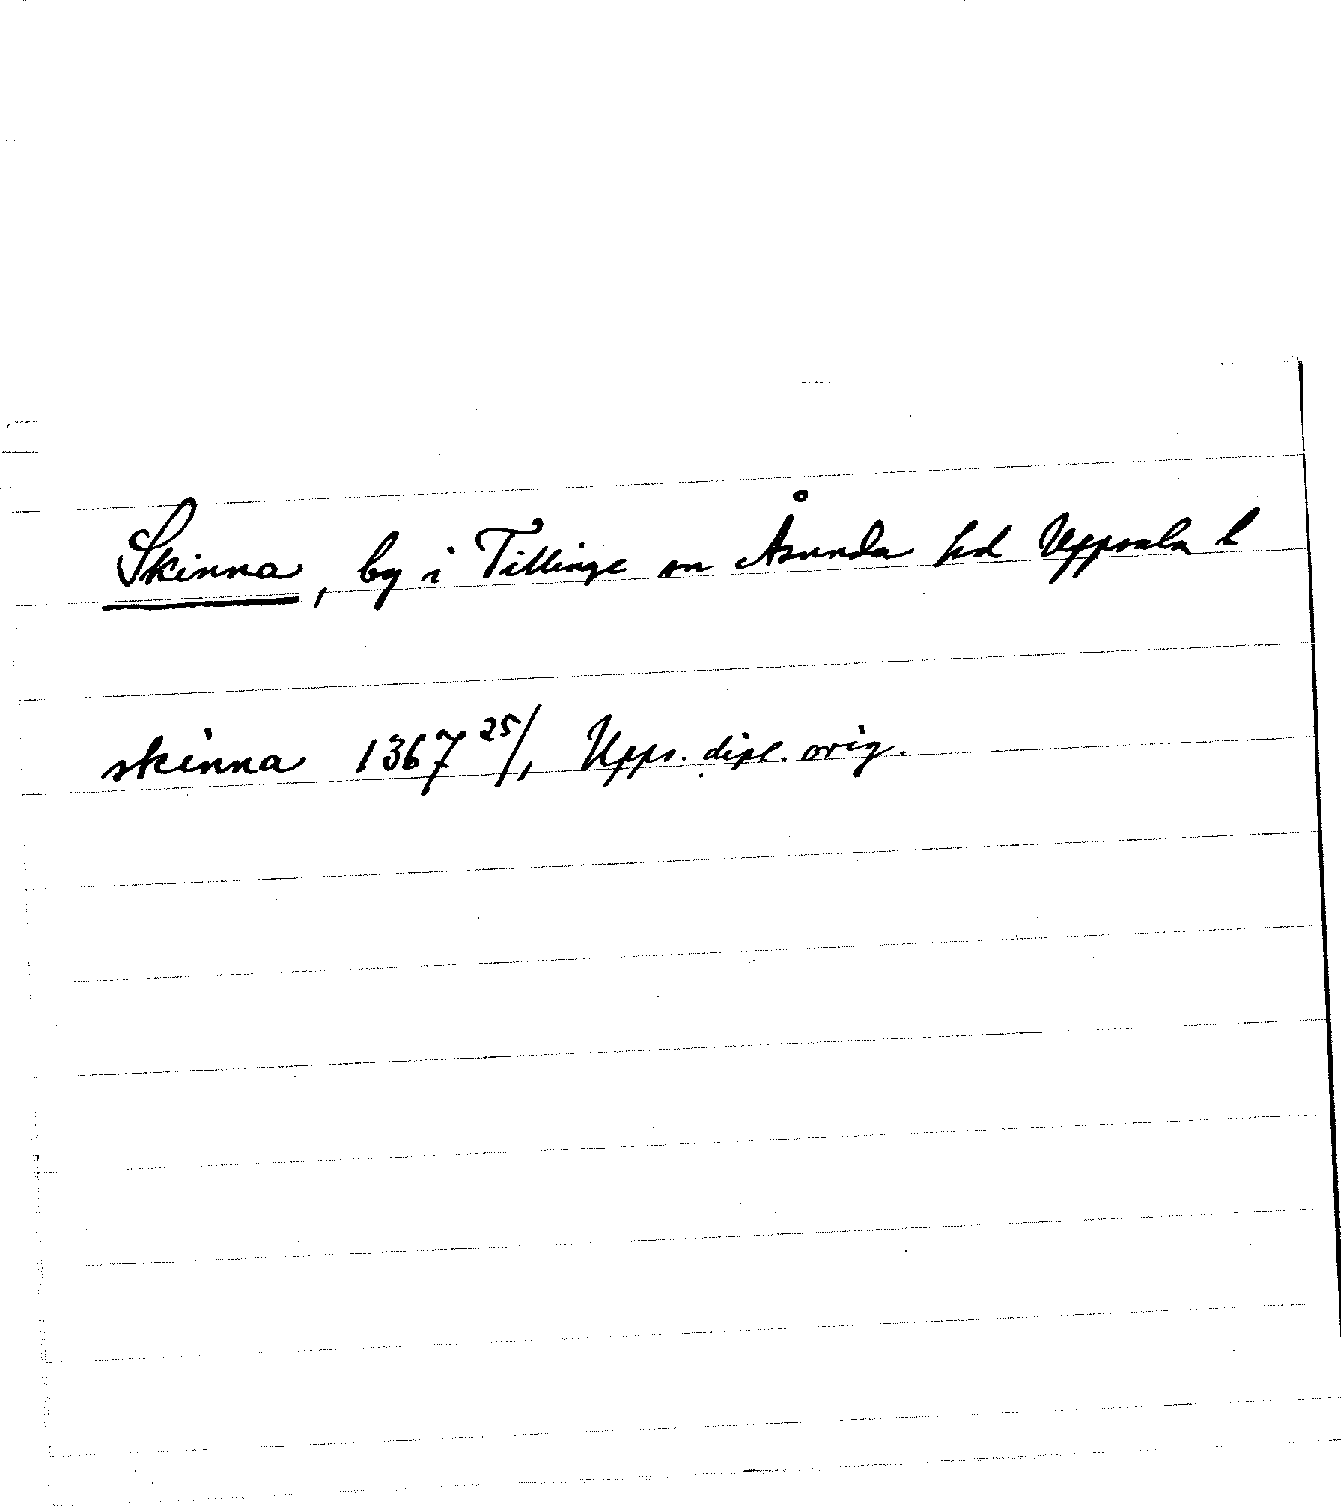 Skinna, by i Tillinge sn Åsunda hd Uppsala l
skinna 1367 25/1 Upps. dipl. orig.